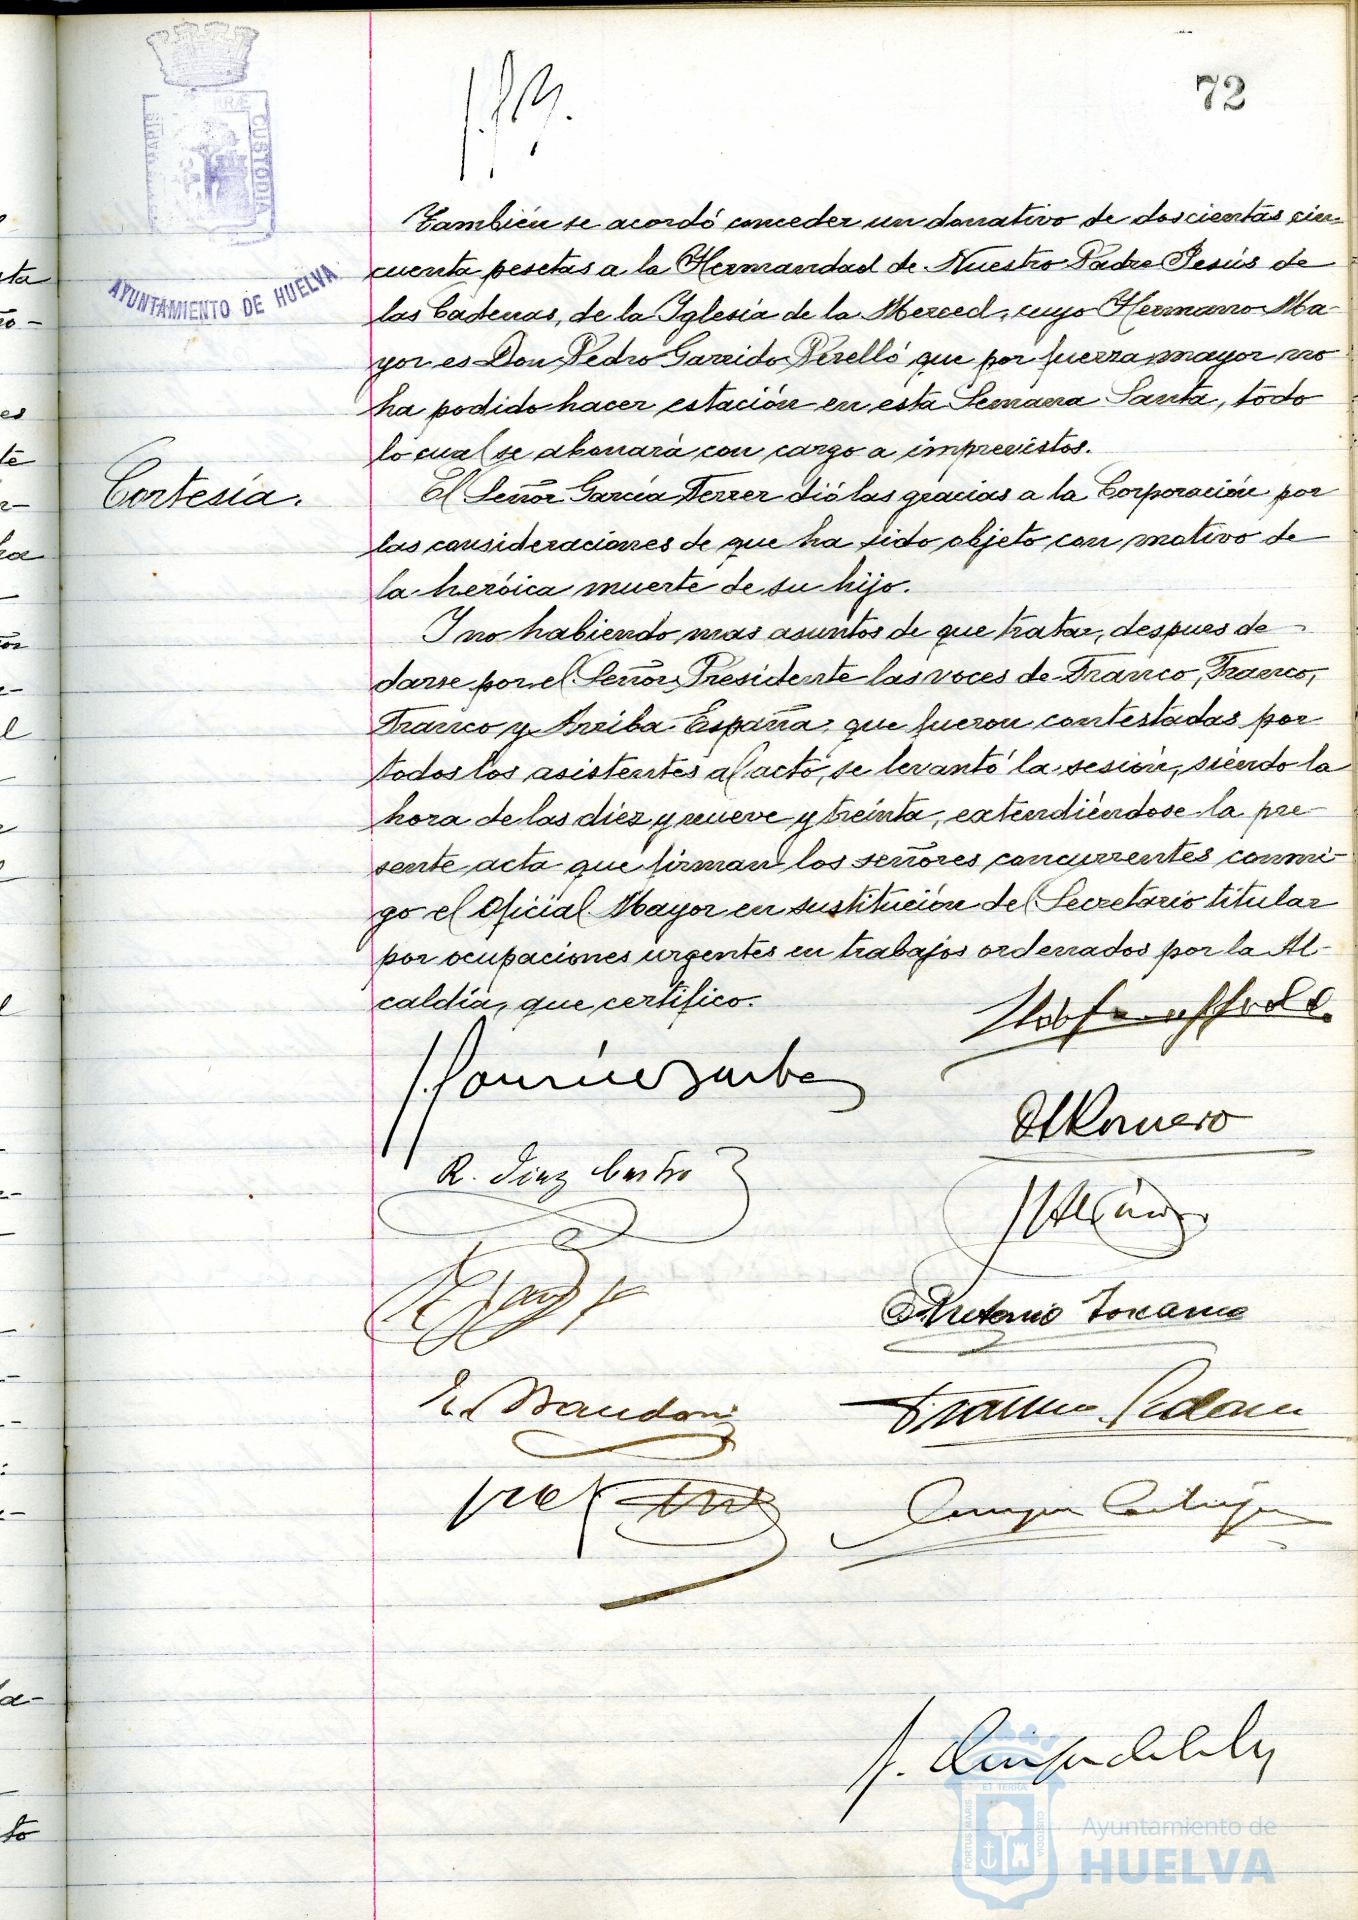 72
CUSTODIA
AYUNTAMIENTO DE HUELVA
También se acordó conceder un donativo de doscientas cin-
cuenta pesetas a la Hermandad de Nuestro Padre Jesús de
las Cadenas, de la Iglesia de la Merced, cuyo Hermano Ma-
yor es Don Pedro Garrido Perelló que por fuerza mayor no
ha podido hacer estación en esta Semana Santa, todo
lo cual se abonará con cargo a imprevistos.
Cortesía.
El Señor García Ferrer dió las gracias a la Corporación por
las consideraciones de que ha sido objeto con motivo de
la heróica muerte de su hijo.
Y no habiendo mas asuntos de que tratar, despues de
darse por el Señor Presidente las voces de Franco, Franco,
Franco y Arriba España, que fueron contestadas por
todos los asistentes al acto, se levantó la sesión, siendo la
hora de las diez y nueve y treinta, extendiéndose la pre-
sente acta que firman los señores concurrentes conmi-
go el Oficial Mayor en sustitución del Secretario titular
por ocupaciones urgentes en trabajos ordenados por la Al-
caldía, que certifico.
Romero
R. Diaz Castro
Antonio Toscano
ET TERRA
PORTUS MARIS
CUSTODIA
Ayuntamiento de
HUELVA